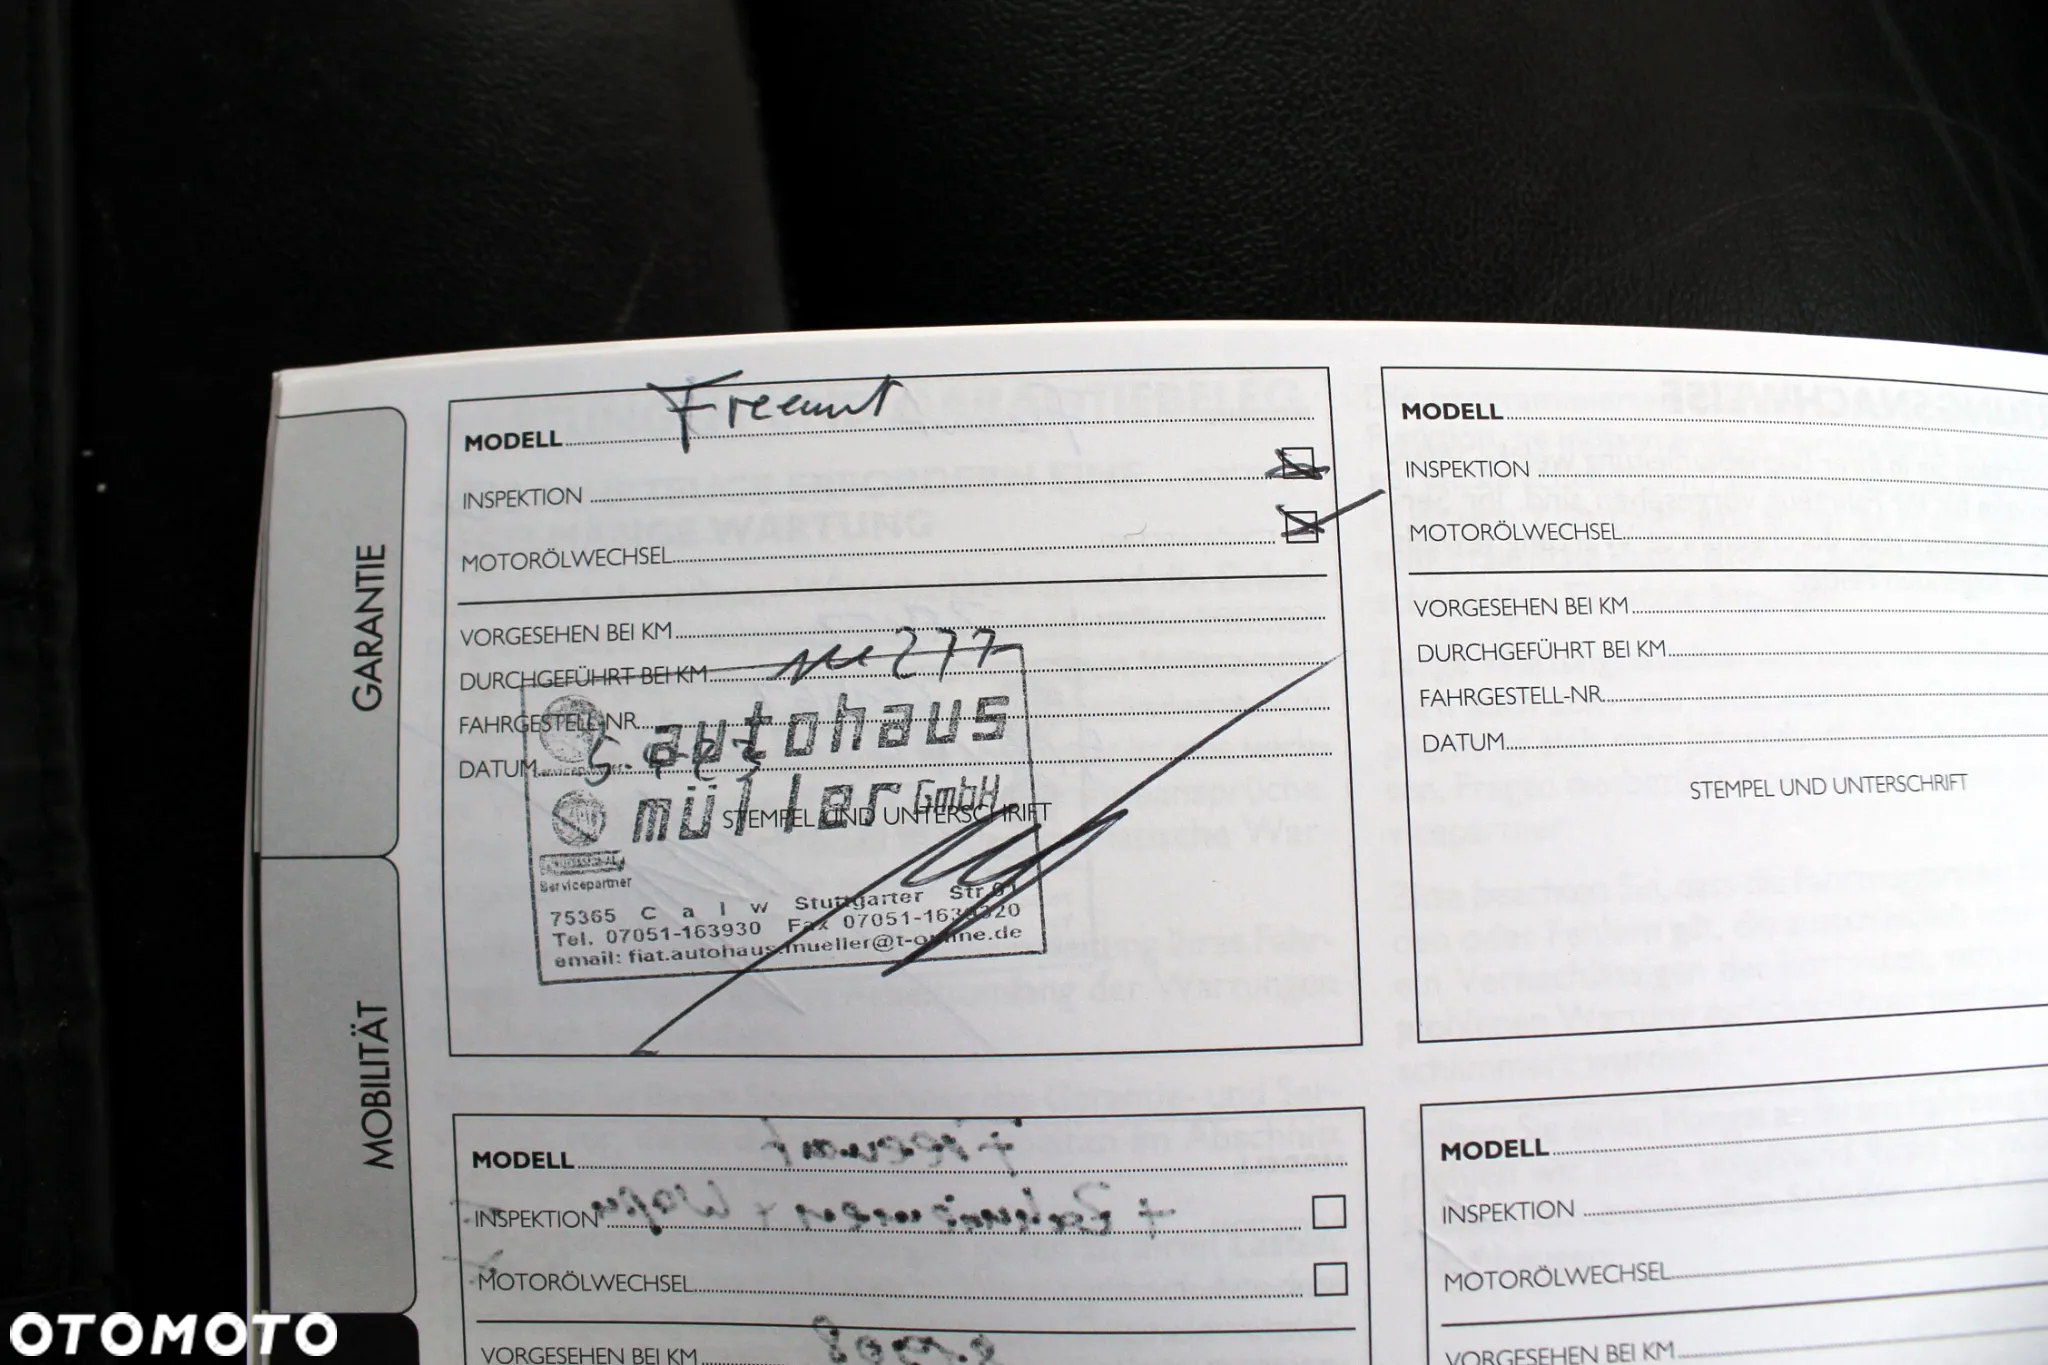 Freemont
MODELL
INSPEKTION
MOTORÖLWECHSEL
VORGESEHEN BEI KM
DURCHGEFÜHRT BEI KM 277
FAHRGESTELL-NR.
DATUM
STEMPEL UND UNTERSCHRIFT
autohaus
müller GmbH
Servicepartner
75365 Calw Stuttgarter Str.
Tel. 07051-163930 Fax
email: fiat.autohaus.mueller@t-online.de
MODELL
INSPEKTION
MOTORÖLWECHSEL
VORGESEHEN BEI KM
DURCHGEFÜHRT BEI KM
FAHRGESTELL-NR.
DATUM
STEMPEL UND UNTERSCHRIFT
GARANTIE
MOBILITÄT
MODELL
INSPEKTION
MOTORÖLWECHSEL
VORGESEHEN BEI KM
MODELL
INSPEKTION
MOTORÖLWECHSEL
VORGESEHEN BEI KM
OTOMOTO